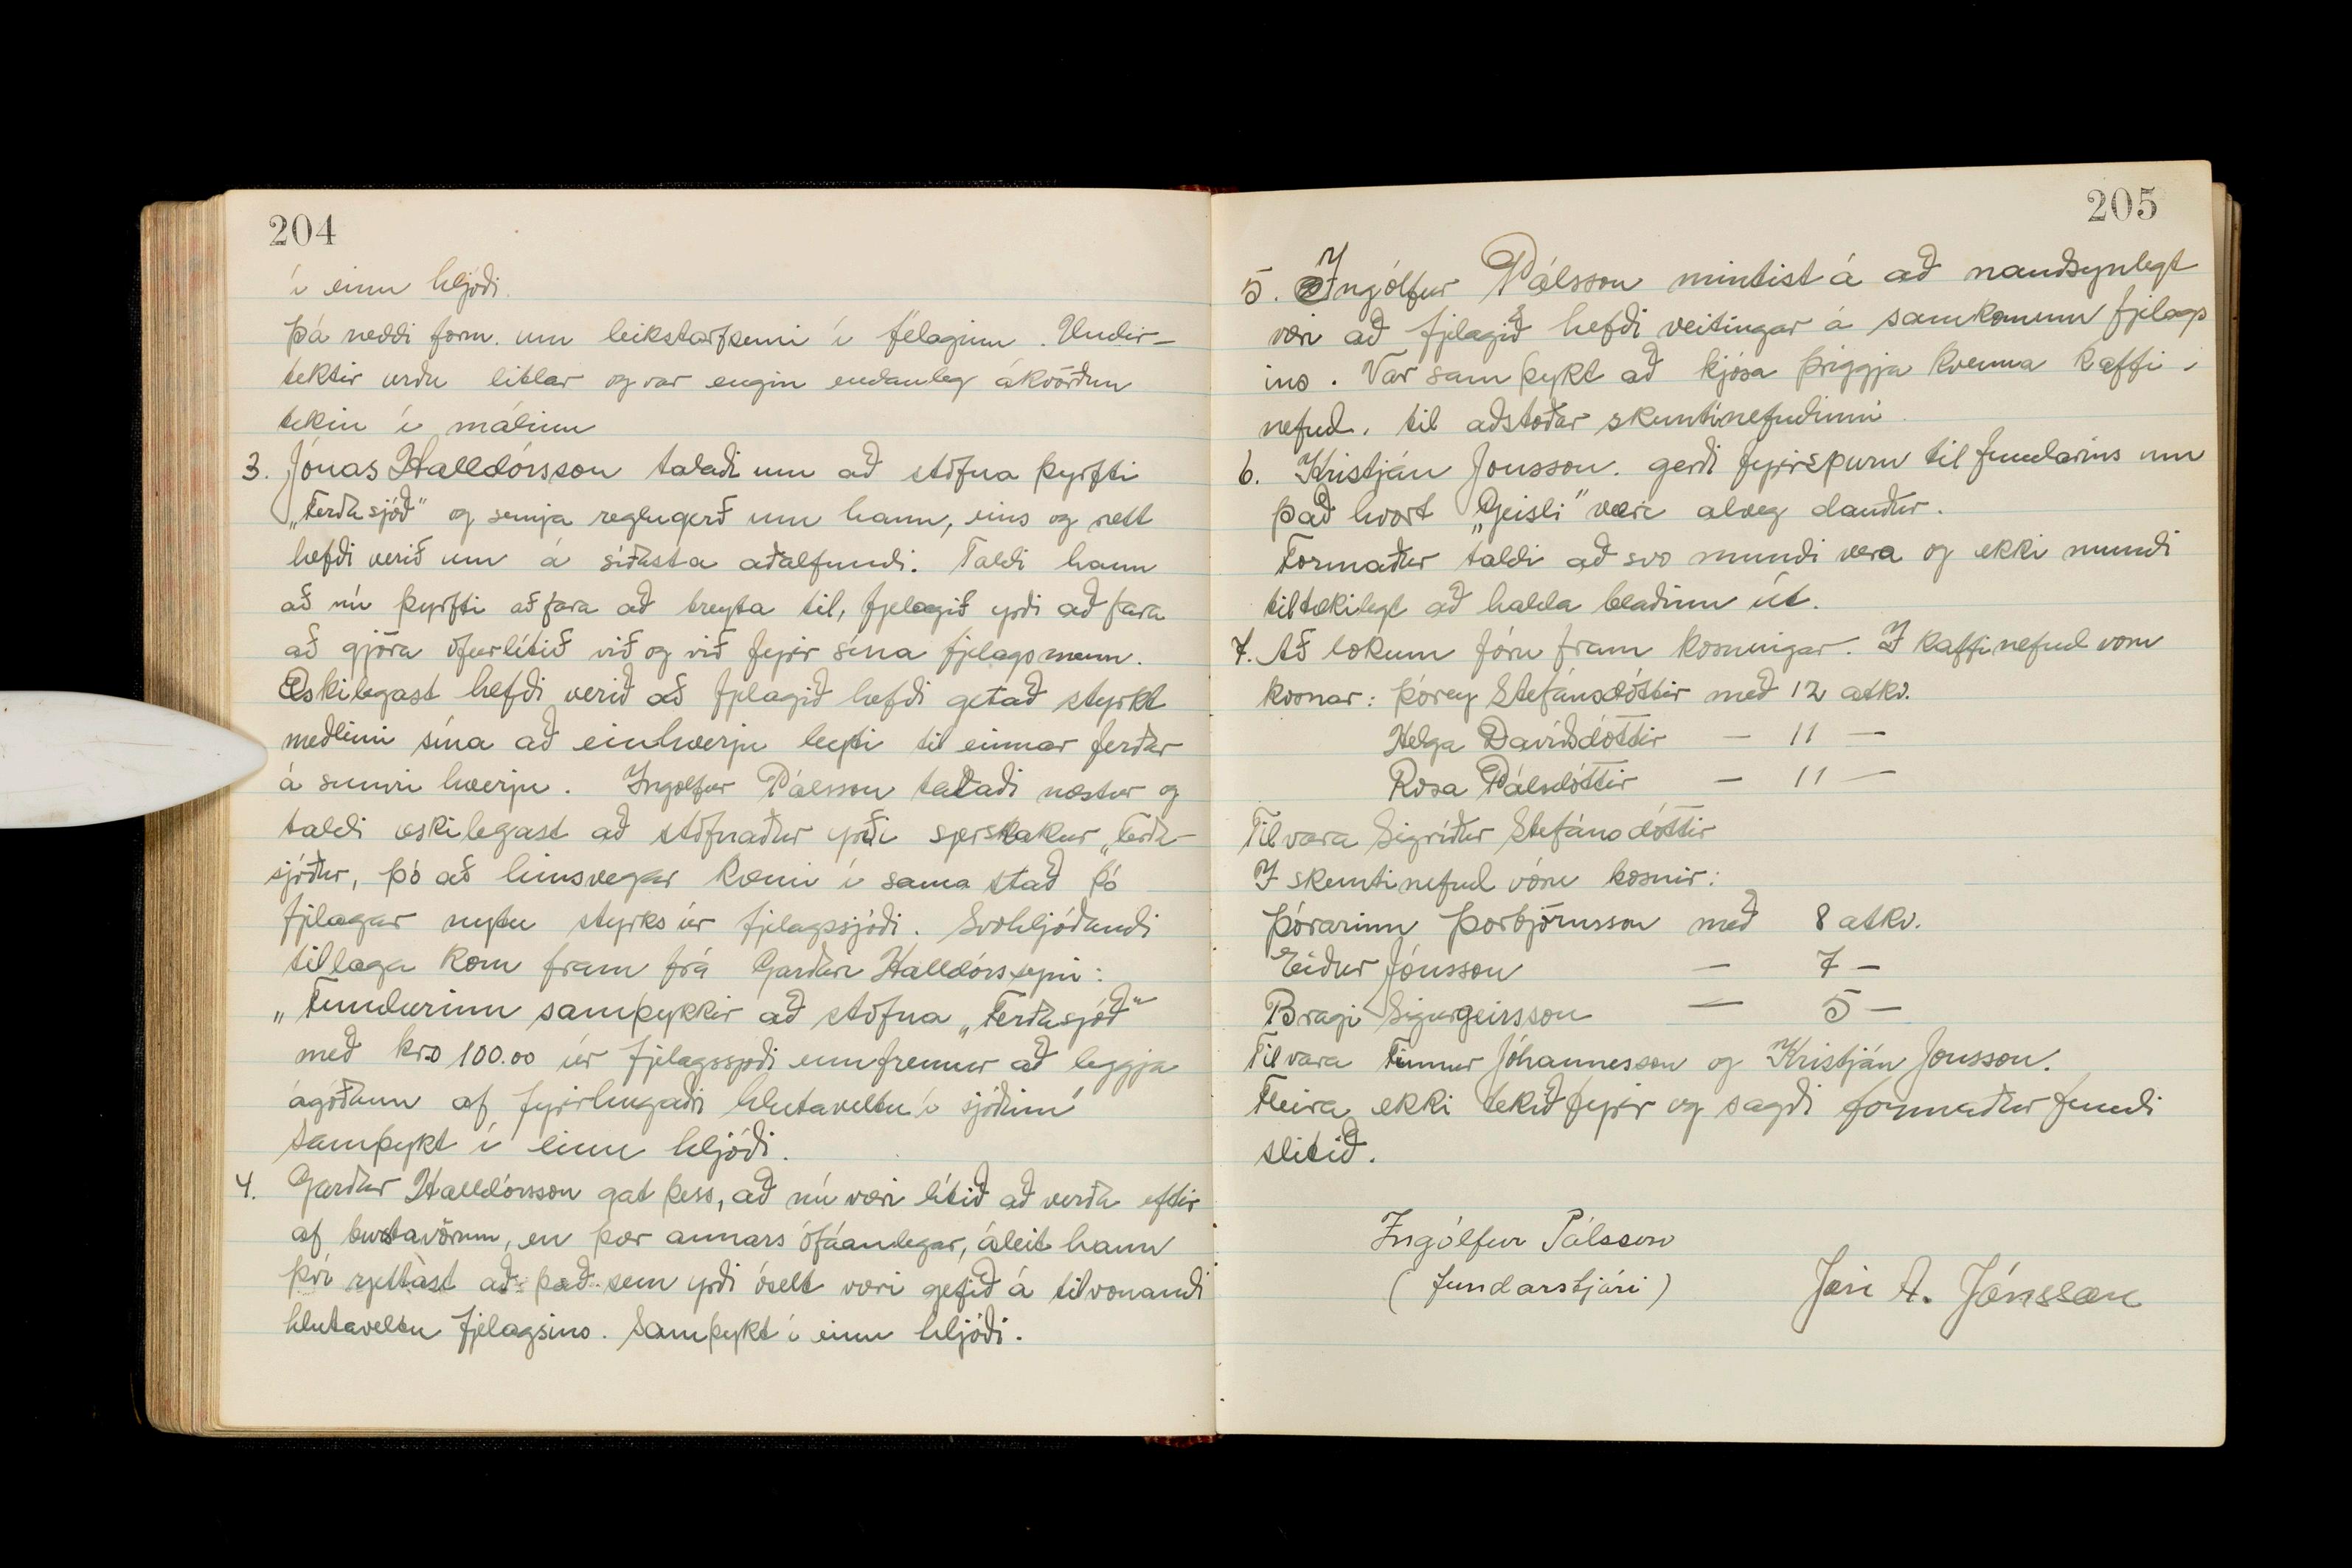 204
í einu hljóði.
Þá ræddi form. um leikstarfsemi í félaginu. Undir-
tektir urðu litlar og var engin endanleg ákvörðun
tekin í málinu
3. Jónas Halldórsson talaði um að stofna þyrfti
„Ferðasjóð" og semja reglugerð um hann, eins og rætt
hefði verið um á síðasta aðalfundi. Taldi hann
að nú þyrfti að fara að breyta til, fjelagið yrði að fara
að gjöra ofurlítið við og við fyrir sína fjelagsmenn.
Æskilegast hefði verið að fjelagið hefði getað styrkt
meðlimi sína að einhverju leyti til einnar ferðar
á sumri hverju. Ingolfur Pálsson talaði næstur og
taldi æskilegast að stofnaður yrði sjerstakur „Ferða-
sjóður, þó að hinsvegar kæmi í sama stað þó
fjelagar nytu styrks úr fjelagssjóði. Svohljóðandi
tillaga kom fram frá Garðari Halldórssyni:
„Fundurinn samþykkir að stofna „Ferðasjóð"
með kr. 100.00 úr fjelagssjóði ennfremur að leggja
ágóðann af fyrirhugaðri hlutaveltu í sjóðinn"
Samþykt í einu hljóði.
4. Garðar Halldórsson gat þess, að nú væri lítið að verða eftir
af burstavörum, en þær annars ófáanlegar, áleit hann
því rjettast að það sem yrði óselt væri gefið á tilvonandi
hlutaveltu fjelagsins. Samþykt í einu hljóði.
205
5. Ingólfur Pálsson mintist á að nauðsynlegt
væri að fjelagið hefði veitingar á samkomum fjelags
ins. Var samþykt að kjósa þriggja kvenna kaffi-
nefnd, til aðstoðar skemtinefndinni.
6. Kristján Jonsson. gerði fyrirspurn til fundarins um
það hvort „Geisli" væri alveg dauður.
Formaður taldi að svo mundi vera og ekki mundi
tiltækilegt að halda blaðinu út.
7. Að lokum fóru fram kosningar. I kaffinefnd voru
kosnar: Þórey Stefánsdóttir með 12 atkv.
Helga Davíðsdóttir — 11 —
Rosa Pálsdóttir — 11 —
Til vara Sigríður Stefánsdóttir
I skemtinefnd vóru kosnir:
Þórarinn Þorbjörnsson með 8 atkv.
Eiður Jónsson — 7 —
Bragi Sigurgeirsson — 5 —
Til vara Finnur Jóhannesson og Kristján Jonsson.
Fleira ekki tekið fyrir og sagði formaður fundi
slitið.
Ingólfur Pálsson
(fundarstjóri)
Jón A. Jónsson